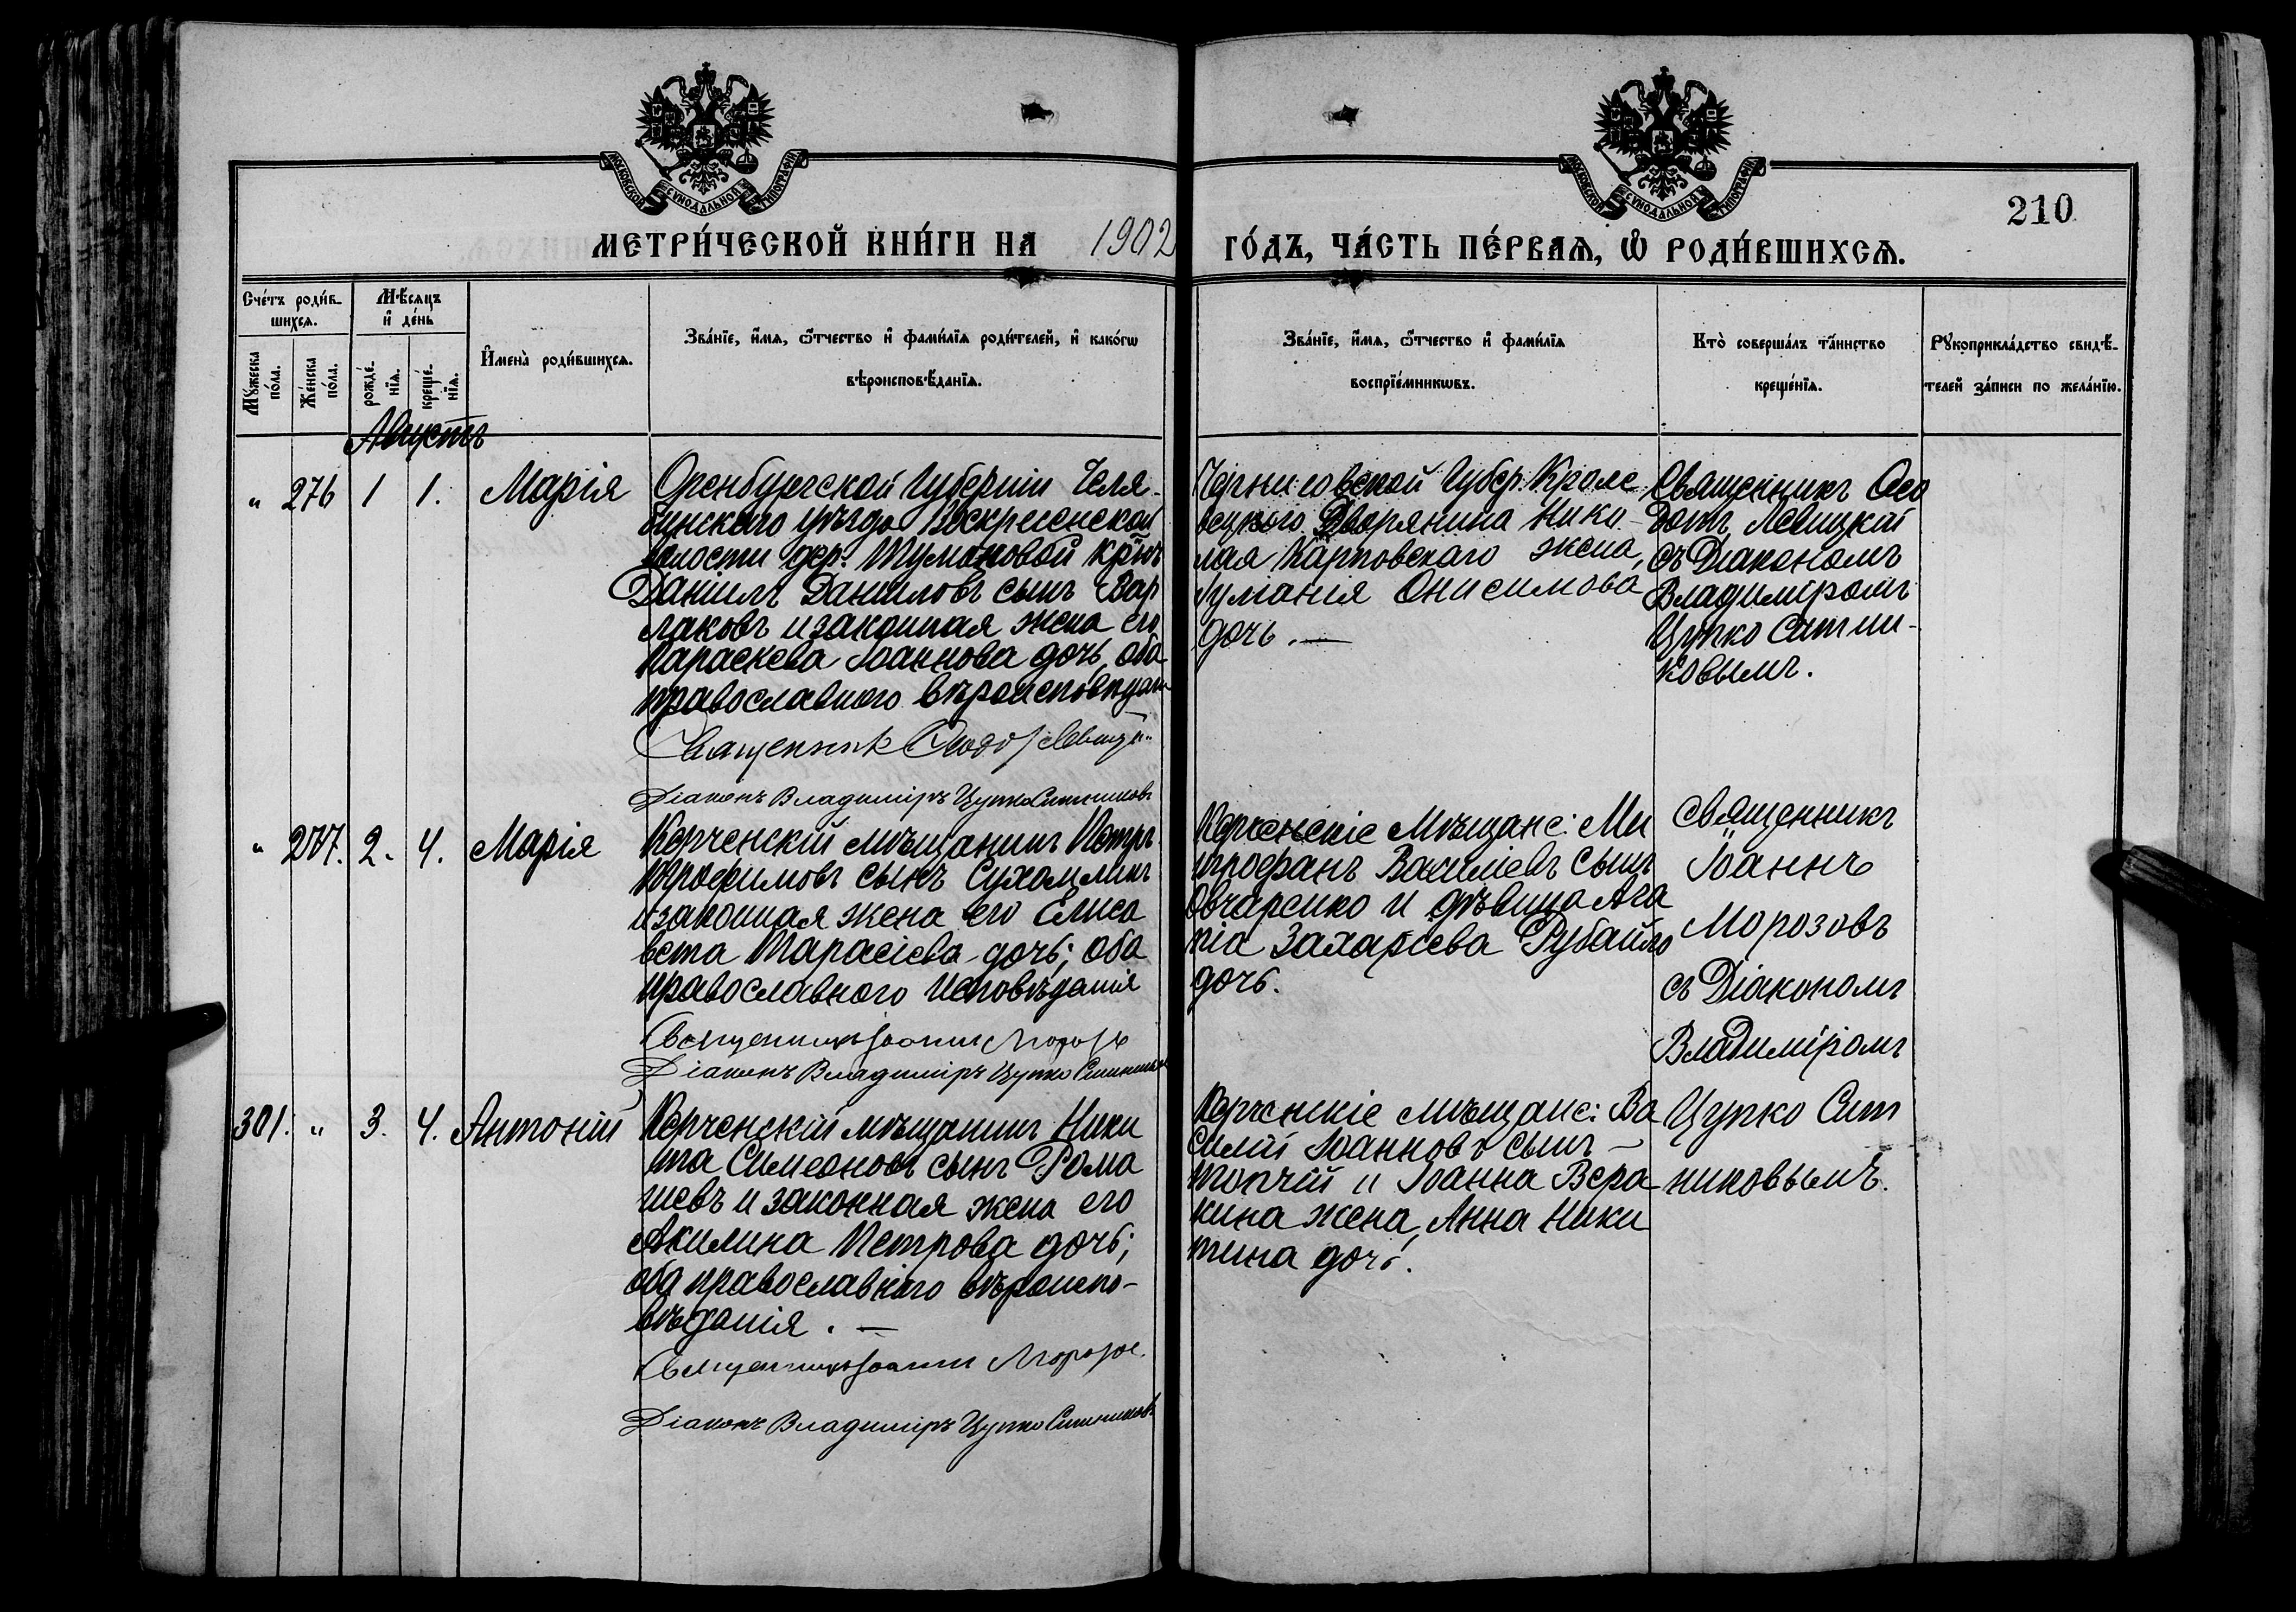 МОСКОВСКОЙ СѴНОДАЛЬНОЙ ТИПОГРАФІИ
МОСКОВСКОЙ СѴНОДАЛЬНОЙ ТИПОГРАФІИ
210
МЕТРИ́ЧЕСКОЙ КНИ́ГИ НА 1902 ГО́ДЪ, ЧА́СТЬ ПЕ́РВАѦ, Ѿ РОДИ́ВШИХСѦ.
Сче́тъ роди́в-
шихсѧ.
Мѣ́сѧцъ
и҆ де́нь
Мꙋ́жеска по́ла.
Же́нска по́ла.
рожде́-
нїѧ.
креще́-
нїѧ.
И҆мена̀ роди́вшихсѧ.
Зва́нїе, и҆́мѧ, ѻ҆́тчество и҆ фами́лїѧ роди́телей, и҆ како́гѡ
вѣроисповѣ́данїѧ.
Зва́нїе, и҆́мѧ, ѻ҆́тчество и҆ фами́лїѧ
воспрїе́мникѡвъ.
Кто̀ соверша́лъ та́инство
креще́нїѧ.
Рꙋкоприкла́дство свидѣ́-
телей за́писи по жела́нїю.
Августъ
" 276 1 1. Марія
Оренбургской Губерніи Челя-
бинскаго уѣзда Воскресенской
волости дер. Тумановой кр-нъ
Даніилъ Даниловъ сынъ Вар
лаковъ и законная жена его
Параскева Іоаннова дочь, оба
православного вѣроисповѣдан
Священникъ Ѳеодо Левицкі
Діаконъ Владиміръ Цупко Ситниковъ
Черниговской Губер. Кроле
вецкого Дворянина Нико-
лая Карповскаго жена,
Іуліанія Онисимова
дочь. —
Священникъ Ѳео
дотъ Левицкій
съ Діакономъ
Владиміромъ
Цупко Ситни-
ковымъ.
" 277. 2. 4. Марія
Керченскій мѣщанинъ Петръ
Трофимовъ сынъ Сухомлинъ
и законная жена его Елиса
вета Тарасіева дочь; оба
православного исповѣданія
Священникъ Іоаннъ Морозовъ
Діаконъ Владиміръ Цупко Ситниковъ
Керченскіе Мѣщане: Ми
трофанъ Василіевъ сынъ
Овчаренко и дѣвица Ага
пія Захаріева Рубайло
дочь.
Священникъ
Іоаннъ
Морозовъ
съ Діакономъ
Владиміромъ
Цупко Сит
никовымъ.
301. " 3. 4. Антоній
Керченскій мѣщанинъ Ники
та Симеоновъ сынъ Рома
шевъ и законная жена его
Акилина Петрова дочь;
оба православнаго вѣроиспо-
вѣданія. —
Священникъ Іоаннъ Морозов
Діаконъ Владиміръ Цупко Ситниковъ
Керченскіе мѣщане: Ва
силій Іоанновъ сынъ —
Топчій и Іоанна Вера
кина жена, Анна Ники
тина дочь.